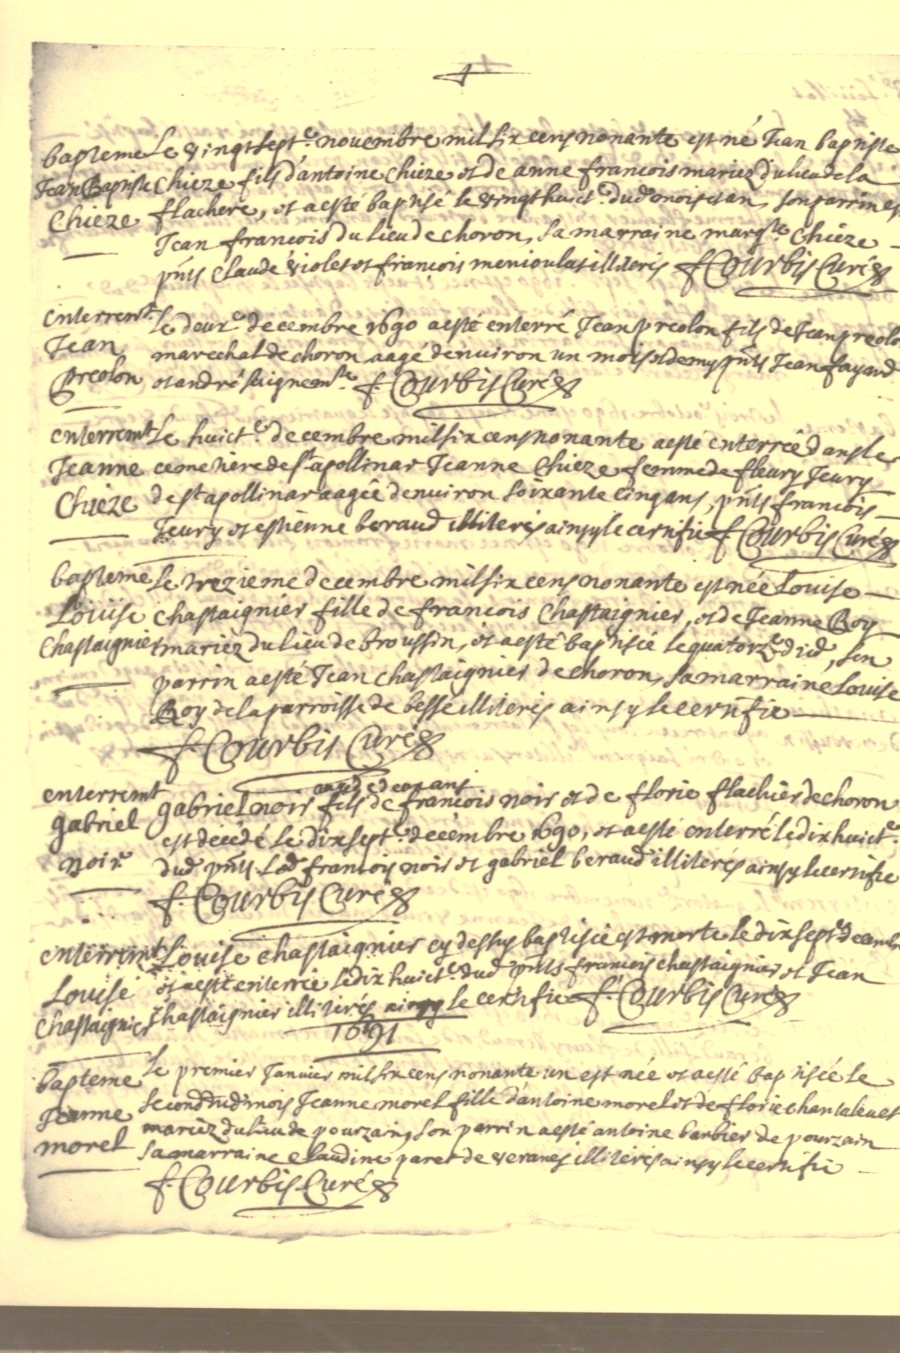 bapteme Le vingtsept.e novembre mil six cens nonante est né Jean baptiste
Jean Baptiste Chieze fils d'antoine Chieze et de anne francois mariez du lieu de la
Chieze flachere, et a esté baptisé le vingthuict.e dud. mois et an, son parrin est
Jean francois du lieu de choron, sa marraine marg.te Chieze
p̃nts Claude violet et francois menioulas illiterés f. Courbis Curé
enterrem.t Le deux.e decembre 1690 a esté enterré Jean preolon fils de Jean preolon
Jean marechal de choron aagé denviron un mois et demy p̃nts Jean fayard
preolon et andré
f. Courbis Curé
enterremt Le huict.e decembre mil six cens nonante a esté enterrée dans le
Jeanne cemetiere de st apollinar Jeanne Chieze femme de fleury Jeury
Chieze de st apollinar aagée denviron soixante cinq ans, p̃nts francois
Jeury et estienne beraud illiterés ainsy le certifie f. Courbis Curé
bapteme Le trezieme decembre mil six cens nonante est née Louise
Louise chastaignier fille de francois Chastaignier, et de Jeanne Roy
Chastaignier mariez du lieu de broussin, et a esté baptisée le quatorz.e dud., son
parrin a esté Jean chastaignier de choron, sa marraine Louise
Roy de la parroisse de besse illiterés ainsy le certifie
f. Courbis Curé
enterremt gabriel noir fils de francois noir et de florie flachier de choron
gabriel est decedé le dixsept.e decembre 1690, et a esté enterré le dix huict.e
noir dud. p̃nts led. francois noir et gabriel beraud illiterés ainsy le certifie
f. Courbis Curé
enterremt Louise chastaignier cy dessus baptisée est morte le dixsept.e decembre
Louise et a esté enterrée le dix huict.e dud. p̃nts francois chastaignier et Jean
Chastaignier chastaignier illiterés ainsy le certifie f. Courbis Curé
1691
bapteme Le premier Janvier mil six cens nonante un est née et a esté baptisée le
Jeanne second dud. mois Jeanne morel fille d'antoine morel et de florie chantaleuet
morel mariez du lieu de pourzain, son parrin a esté antoine barbier de pourzain
sa marraine Claudine paret de veranes illiterés ainsy le certifie
f. Courbis Curé